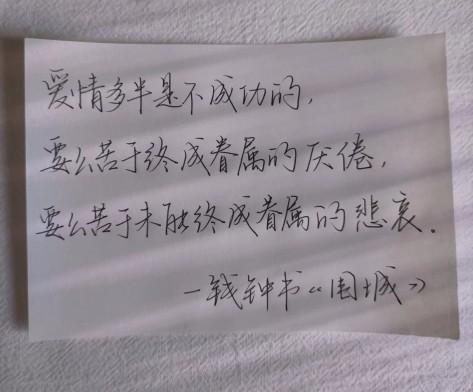 爱情多半是不成功的,
要么苦于终成眷属的厌倦,
要么苦于未能终成眷属的悲哀.
—钱钟书《围城》